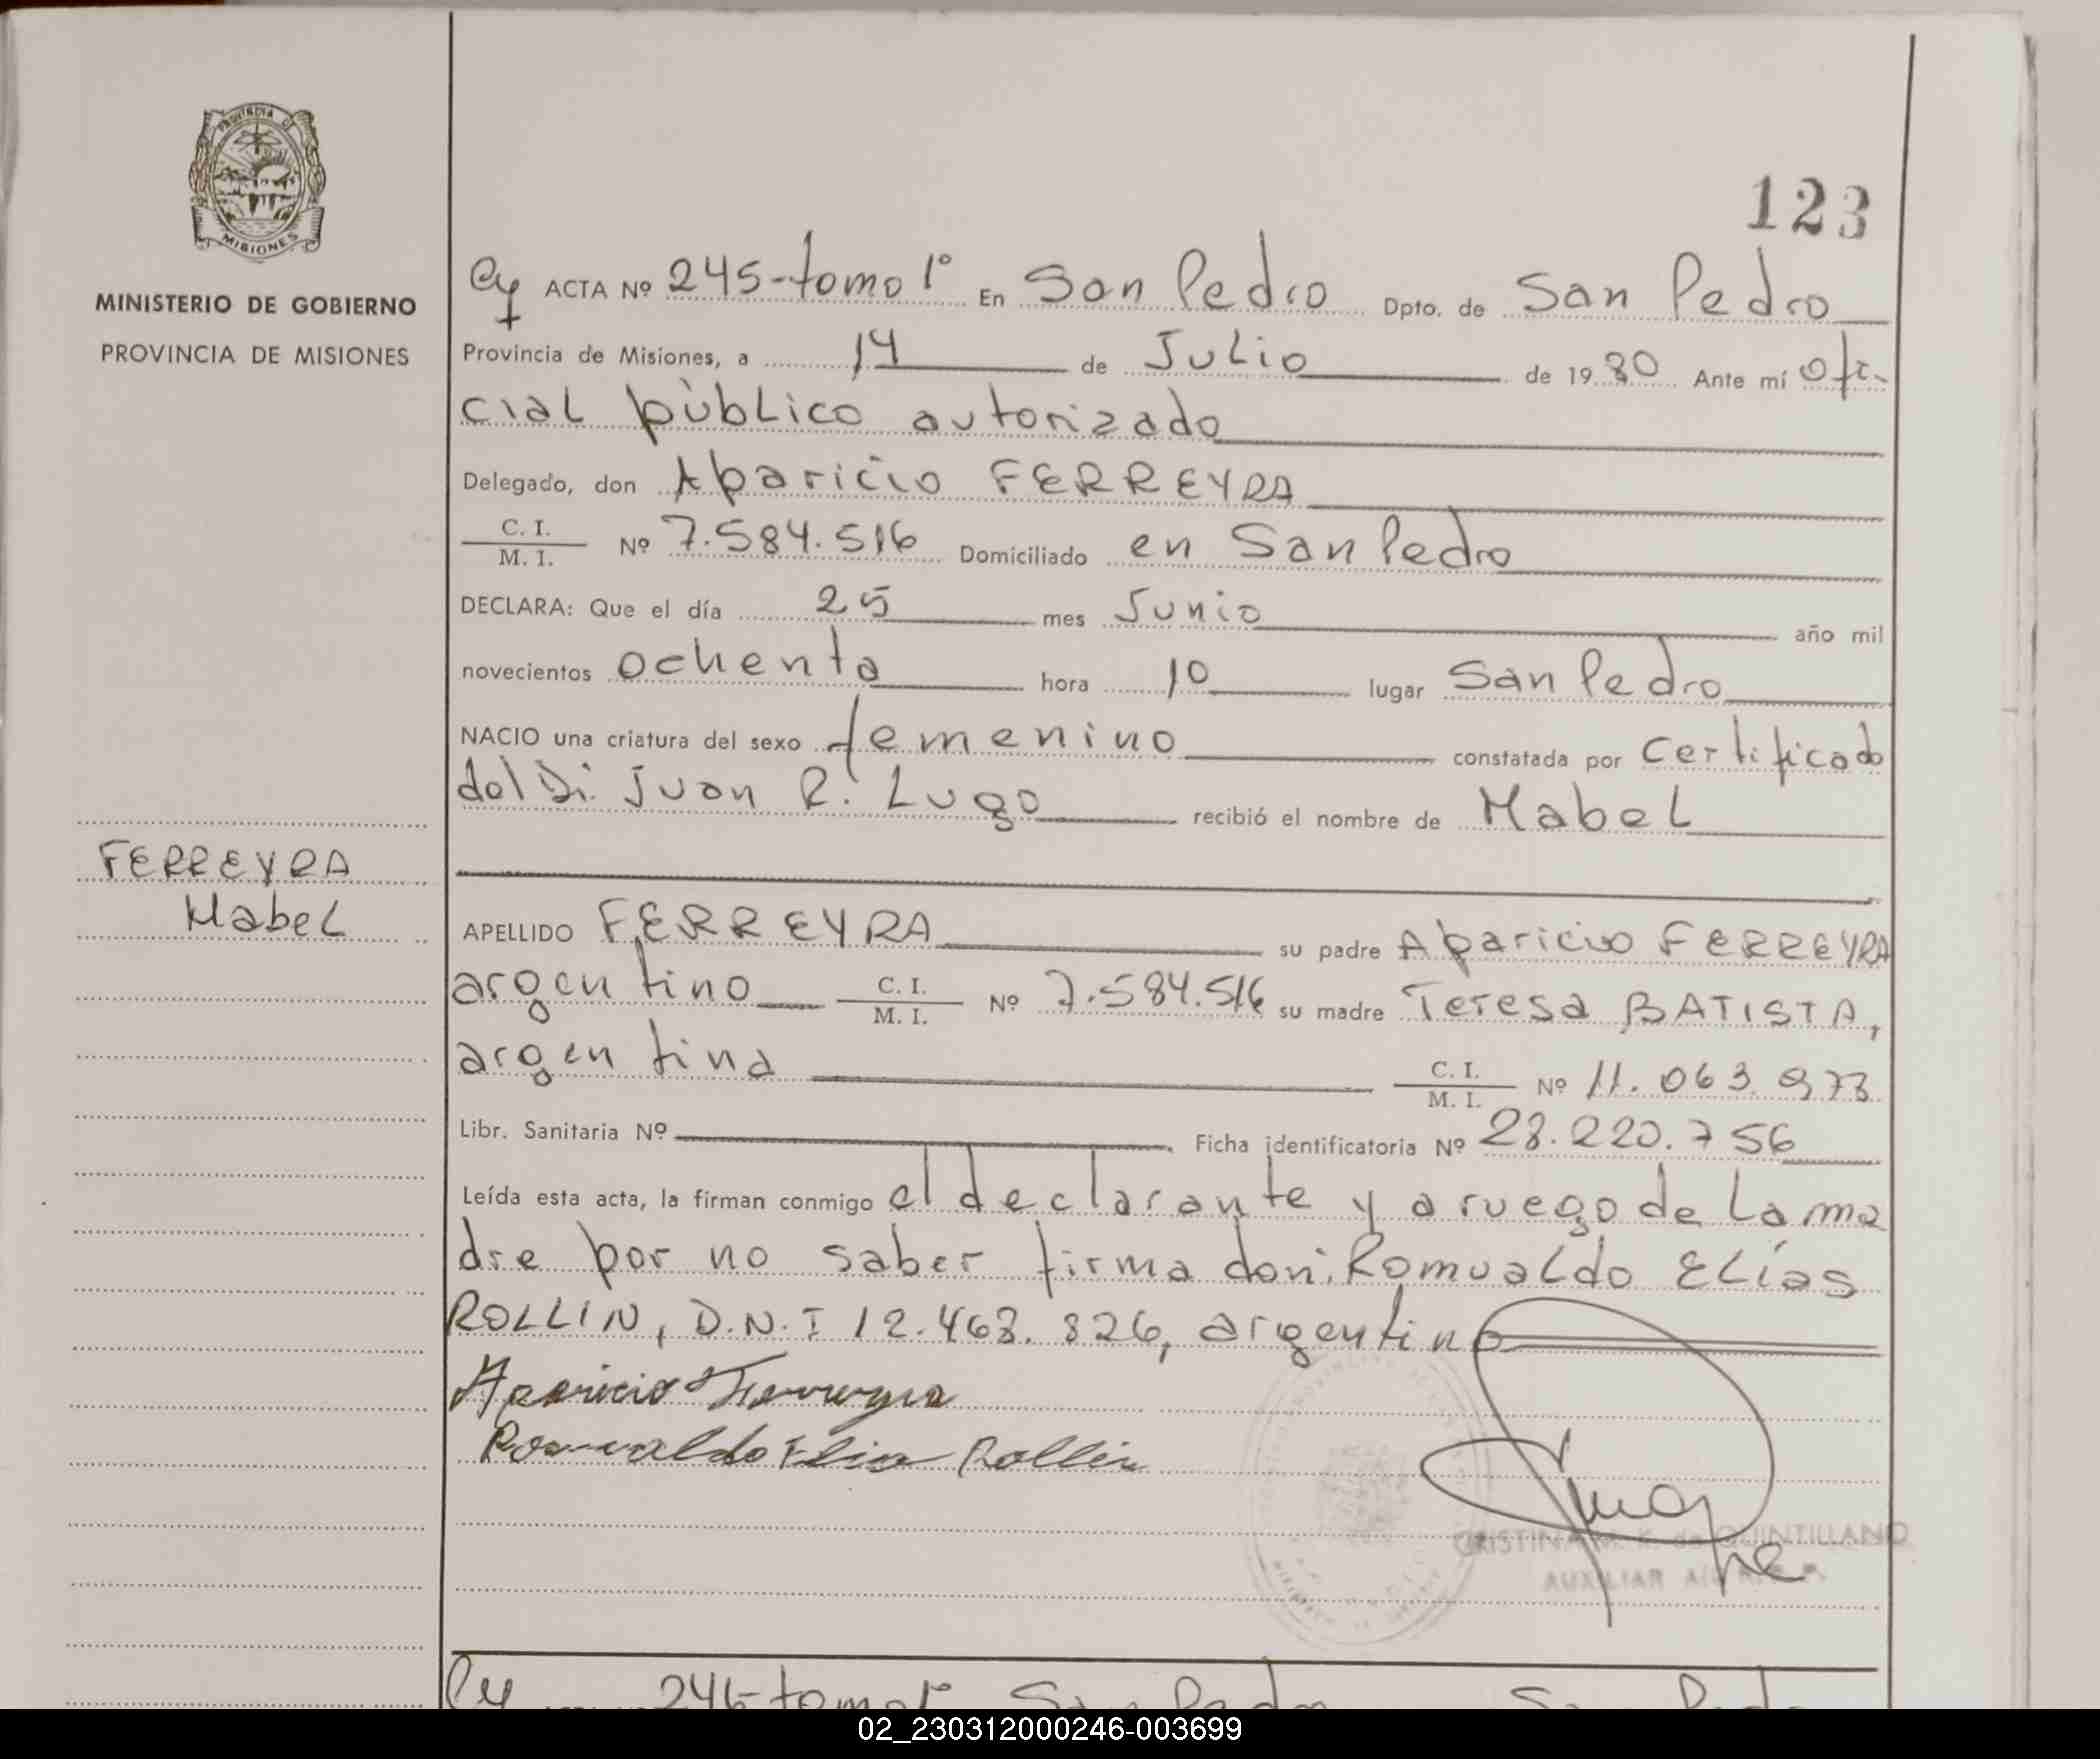 123
PROVINCIA DE
MISIONES
MINISTERIO DE GOBIERNO
PROVINCIA DE MISIONES
FERREYRA
Mabel
ACTA Nº 245-tomo 1° En San Pedro Dpto. de San Pedro
Provincia de Misiones, a 14 de Julio de 1980 Ante mí ofi-
cial pùblico autorizado
Delegado, don Aparicio FERREYRA
C. I.
M. I. Nº 7.584.516 Domiciliado en San Pedro
DECLARA: Que el día 25 mes Junio año mil
novecientos ochenta hora 10 lugar San Pedro
NACIO una criatura del sexo femenino constatada por certificado
del Dr. Juan R. Lugo recibió el nombre de Mabel
APELLIDO FERREYRA su padre Aparicio FERREYRA
argentino C. I.
M. I. Nº 7.584.516 su madre Teresa BATISTA,
argentina C. I.
M. I. Nº 11.063.973
Libr. Sanitaria Nº Ficha identificatoria Nº 28.220.756
Leída esta acta, la firman conmigo el declarante y a ruego de La ma
dre por no saber firma don: Romualdo Elías
ROLLIN, D.N.I 12.468.826, argentino
Aparicio Ferreyra
Romualdo Elia Rollin
CRISTINA M. K. de QUINTILLANO
AUXILIAR
246-tomo 1° San Pedro San Pedro
02_230312000246-003699